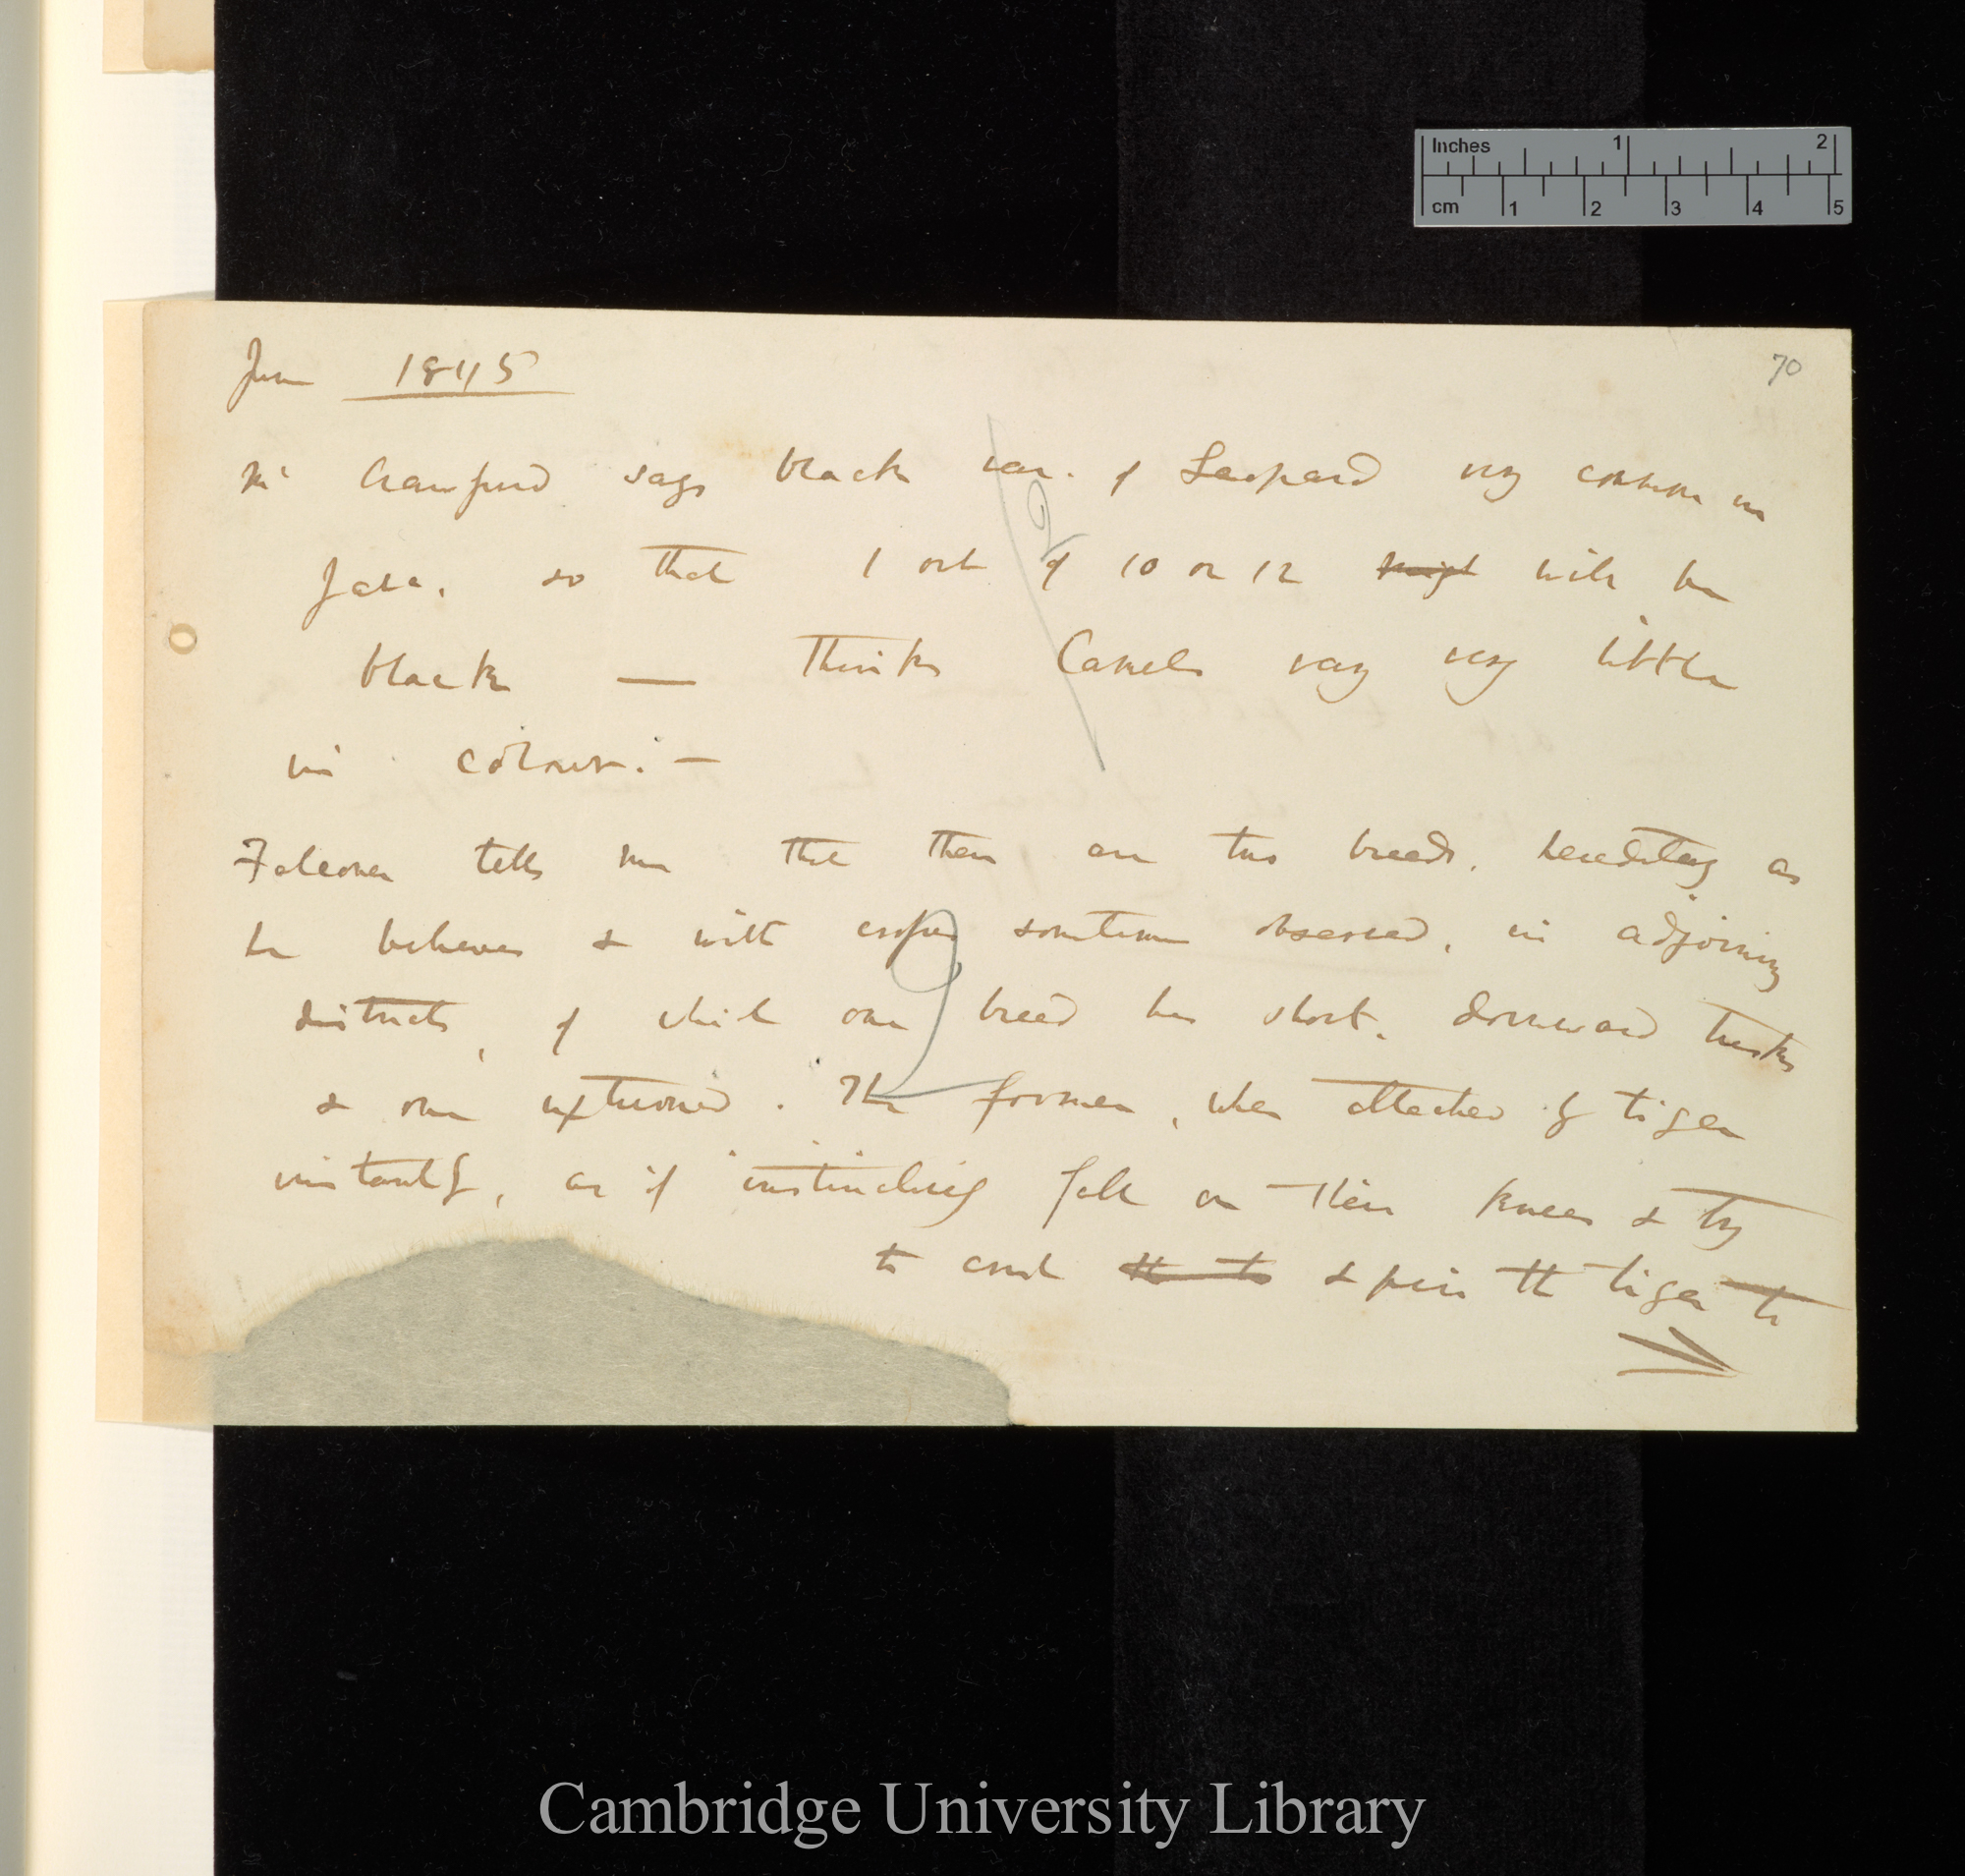 Inches 1 2
cm 1 2 3 4 5
June 1845
70
Mr Crawfurd says black var. of Leopard very common in
Java. so that 1 out of 10 or 12 might will be
black — Thinks Camels vary very little
in colour. —
Falconer tells me that there are two breeds, hereditary as
he believes & with sometimes observed, in adjoining
districts, of which one breed has short, downward tusks
& one upturned. The former, when attacked by tiger
instantly, as if instinctively fall on their knees & try
to crush & pin the tiger to
Cambridge University Library